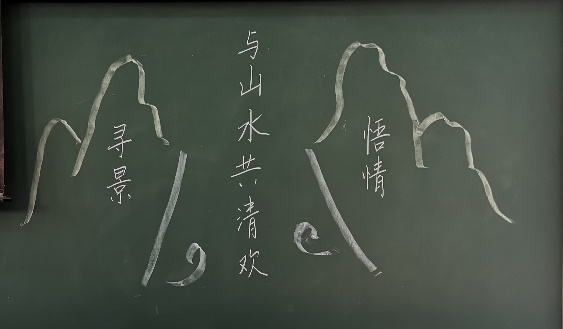 与山水共清欢
寻景
悟情